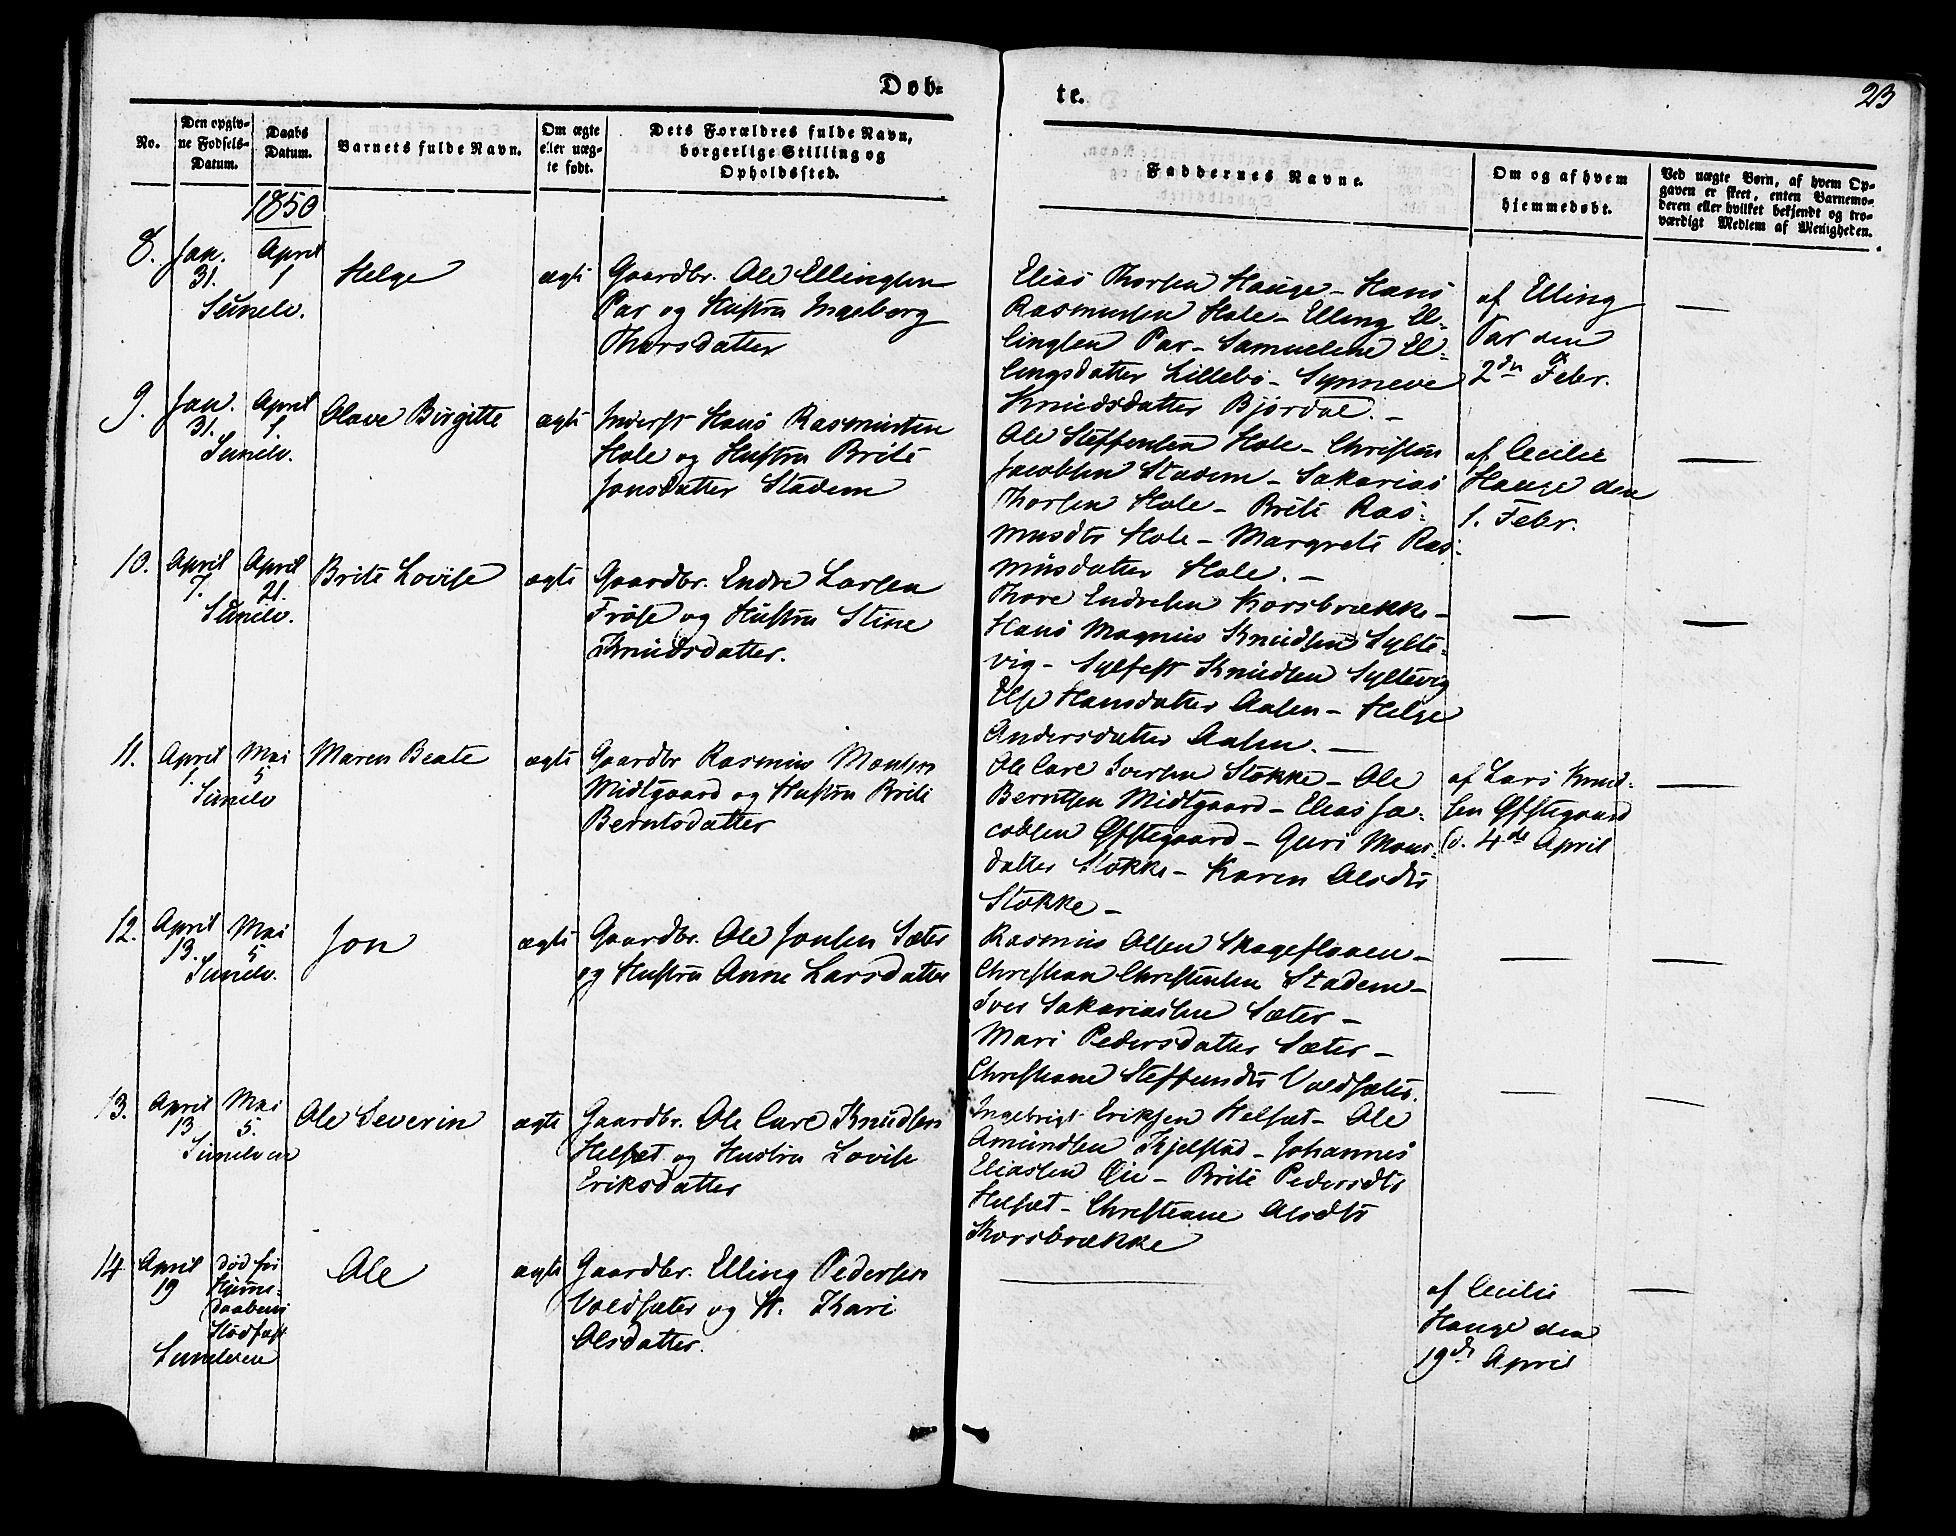 Døb-
te.
23
No.
Den opgiv-
ne Fødsels-
Datum.
Daabs
Datum.
Barnets fulde Navn.
Om ægte
eller uæg-
te født.
Dets Forældres fulde Navn,
borgerlige Stilling og
Opholdssted.
Faddernes Navne.
Om og af hvem
hjemmedøbt.
Ved uægte Børn, af hvem Op-
gaven er skeet, enten Barnemo-
deren eller hvilket bekjendt og tro-
værdigt Medlem af Menigheden.
1850
8.
Jan.
31.
April
1
Sunelv.
Helge
ægte
Gaardbr. Ole Ellingsen
Par og Hustru Ingeborg
Thorsdatter
Elias Thorsen Hauge - Hans
Rasmussen Hole - Elling El-
lingsen Par - Samueline El-
lingsdatter Lillebø - Synneve
Knudsdatter Bjørdal. -
af Elling
Par den
2den Febr.
—
9.
Jan.
31.
April
1
Sunelv.
Olave Birgitte
ægte
Inderst Hans Rasmussen
Hole og Hustru Brite
Jonsdatter Stadem
Ole Steffensen Hole - Christen
Jacobsen Stadem - Sakarias
Thorsen Hole - Brite Ras-
musdtr Hole - Margrete Ras-
musdatter Hole. -
af Cecilie
Hauge den
1. Febr.
—
10.
April
7.
April
21.
Sunelv.
Brite Lovise
ægte
Gaardbr. Endre Larsen
Frøse og Hustru Stine
Knudsdatter.
Thore Endresen Korsbrække -
Hans Magnus Knudsen Sylte-
vig - Sylfest Knudsen Syltevig
Else Hansdatter Aasen - Helge
Andersdatter Aasen. -
—
—
11.
April
1.
Mai
5
Sunelv
Maren Beate
ægte
Gaardbr Rasmus Monsen
Midtgaard og Hustru Brite
Berntsdatter
Ole Carl Iversen Stokke - Ole
Berntsen Midtgaard - Elias Ja-
cobsen Øfstegaard - Guri Mons-
datter Stokke - Karen Olsdtr
Stokke -
af Lars Knud-
sen Øfstegaard
d. 4de April
—
12.
April
13.
Mai
5
Sunelv.
Jon
ægte
Gaardbr. Ole Jonsen Sæter
og Hustru Anne Larsdatter
Rasmus Olsen Skageflaaen -
Christian Christensen Stadem -
Iver Sakariassen Sæter -
Mari Pedersdatter Sæter -
Christiane Steffensdtr Voldsæter.
—
—
13.
April
13
Mai
5.
Sunelven
Ole Severin
ægte
Gaardbr. Ole Carl Knudsen
Helsæt og Hustru Lovise
Eriksdatter
Ingebrigt Eriksen Helsæt - Ole
Amundsen Kjelstad - Johannes
Eliassen Øie - Brite Pedersdtr
Helsæt - Christiane Olsdtr
Korsbrække
—
—
14
April
19
død før
daabens
Stadfæst
Sunelven
Ole
ægte
Gaardbr. Elling Pedersen
Voldsæter og H. Kari
Olsdatter.
—
af Cecilie
Hauge den
19de April
—